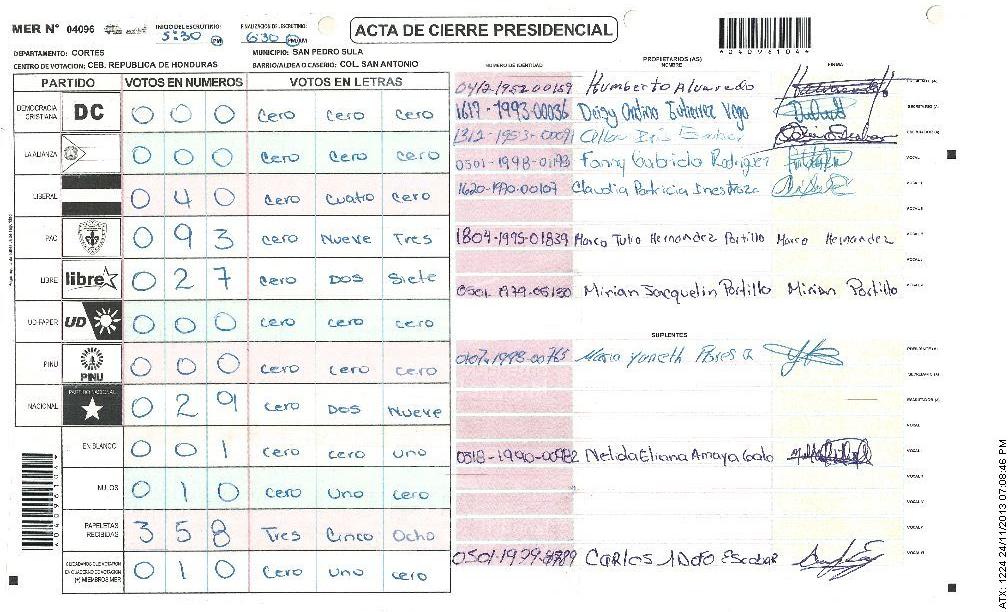 MER Nº 04096 INICIO DEL ESCRUTINIO: 5:30 PM FINALIZACION DE ESCRUTINIO: 6:30 PM
ACTA DE CIERRE PRESIDENCIAL
04096104
DEPARTAMENTO: CORTES MUNICIPIO: SAN PEDRO SULA
CENTRO DE VOTACION: CEB. REPUBLICA DE HONDURAS BARRIO/ALDEA O CASERIO: COL. SAN ANTONIO
PARTIDO VOTOS EN NUMEROS VOTOS EN LETRAS
DEMOCRACIA CRISTIANA DC 0 0 0 cero cero cero
LA ALIANZA 0 0 0 cero cero cero
LIBERAL 0 4 0 cero cuatro cero
PAC 0 9 3 cero Nueve Tres
LIBRE libre 0 2 7 cero Dos Siete
UD-FAPER UD 0 0 0 cero cero cero
PINU PINU 0 0 0 cero cero cero
NACIONAL PARTIDO NACIONAL 0 2 9 cero Dos Nueve
EN BLANCO 0 0 1 cero cero uno
NULOS 0 1 0 cero uno cero
PAPELETAS RECIBIDAS 3 5 8 Tres Cinco Ocho
(+) MIEMBROS MER 0 1 0 Cero uno cero
PROPIETARIOS (AS)
NUMERO DE IDENTIDAD NOMBRE FIRMA
0412-1952-00159 Humberto Alvarado
1617-1993-00036 Deisy Gutierrez Vega
1312-1953-00091
0501-1998-01193 Fanny Gabriela Rodriguez VOCAL
1620-1990-00107 Claudia Patricia Inestroza
1804-1995-01839 Marco Tulio Hernandez Portillo Marco Hernandez
0501 1979-05150 Mirian Jacquelin Portillo Mirian Portillo
SUPLENTES
0107-1998-00765 Maria Yaneth Flores
0318-1990-00982 Nelida Eliana Amaya
CARLOS Escobar
ATX: 1224 24/11/2013 07:08:46 PM